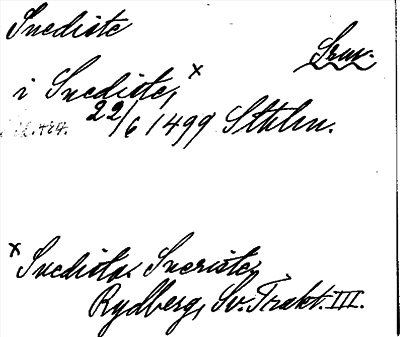 Snediste
Smv.
i Snediste, x
22/6 1499 Sthlm.
x Snedista, Sneriste,
Rydberg, Sv. Trakt. III.